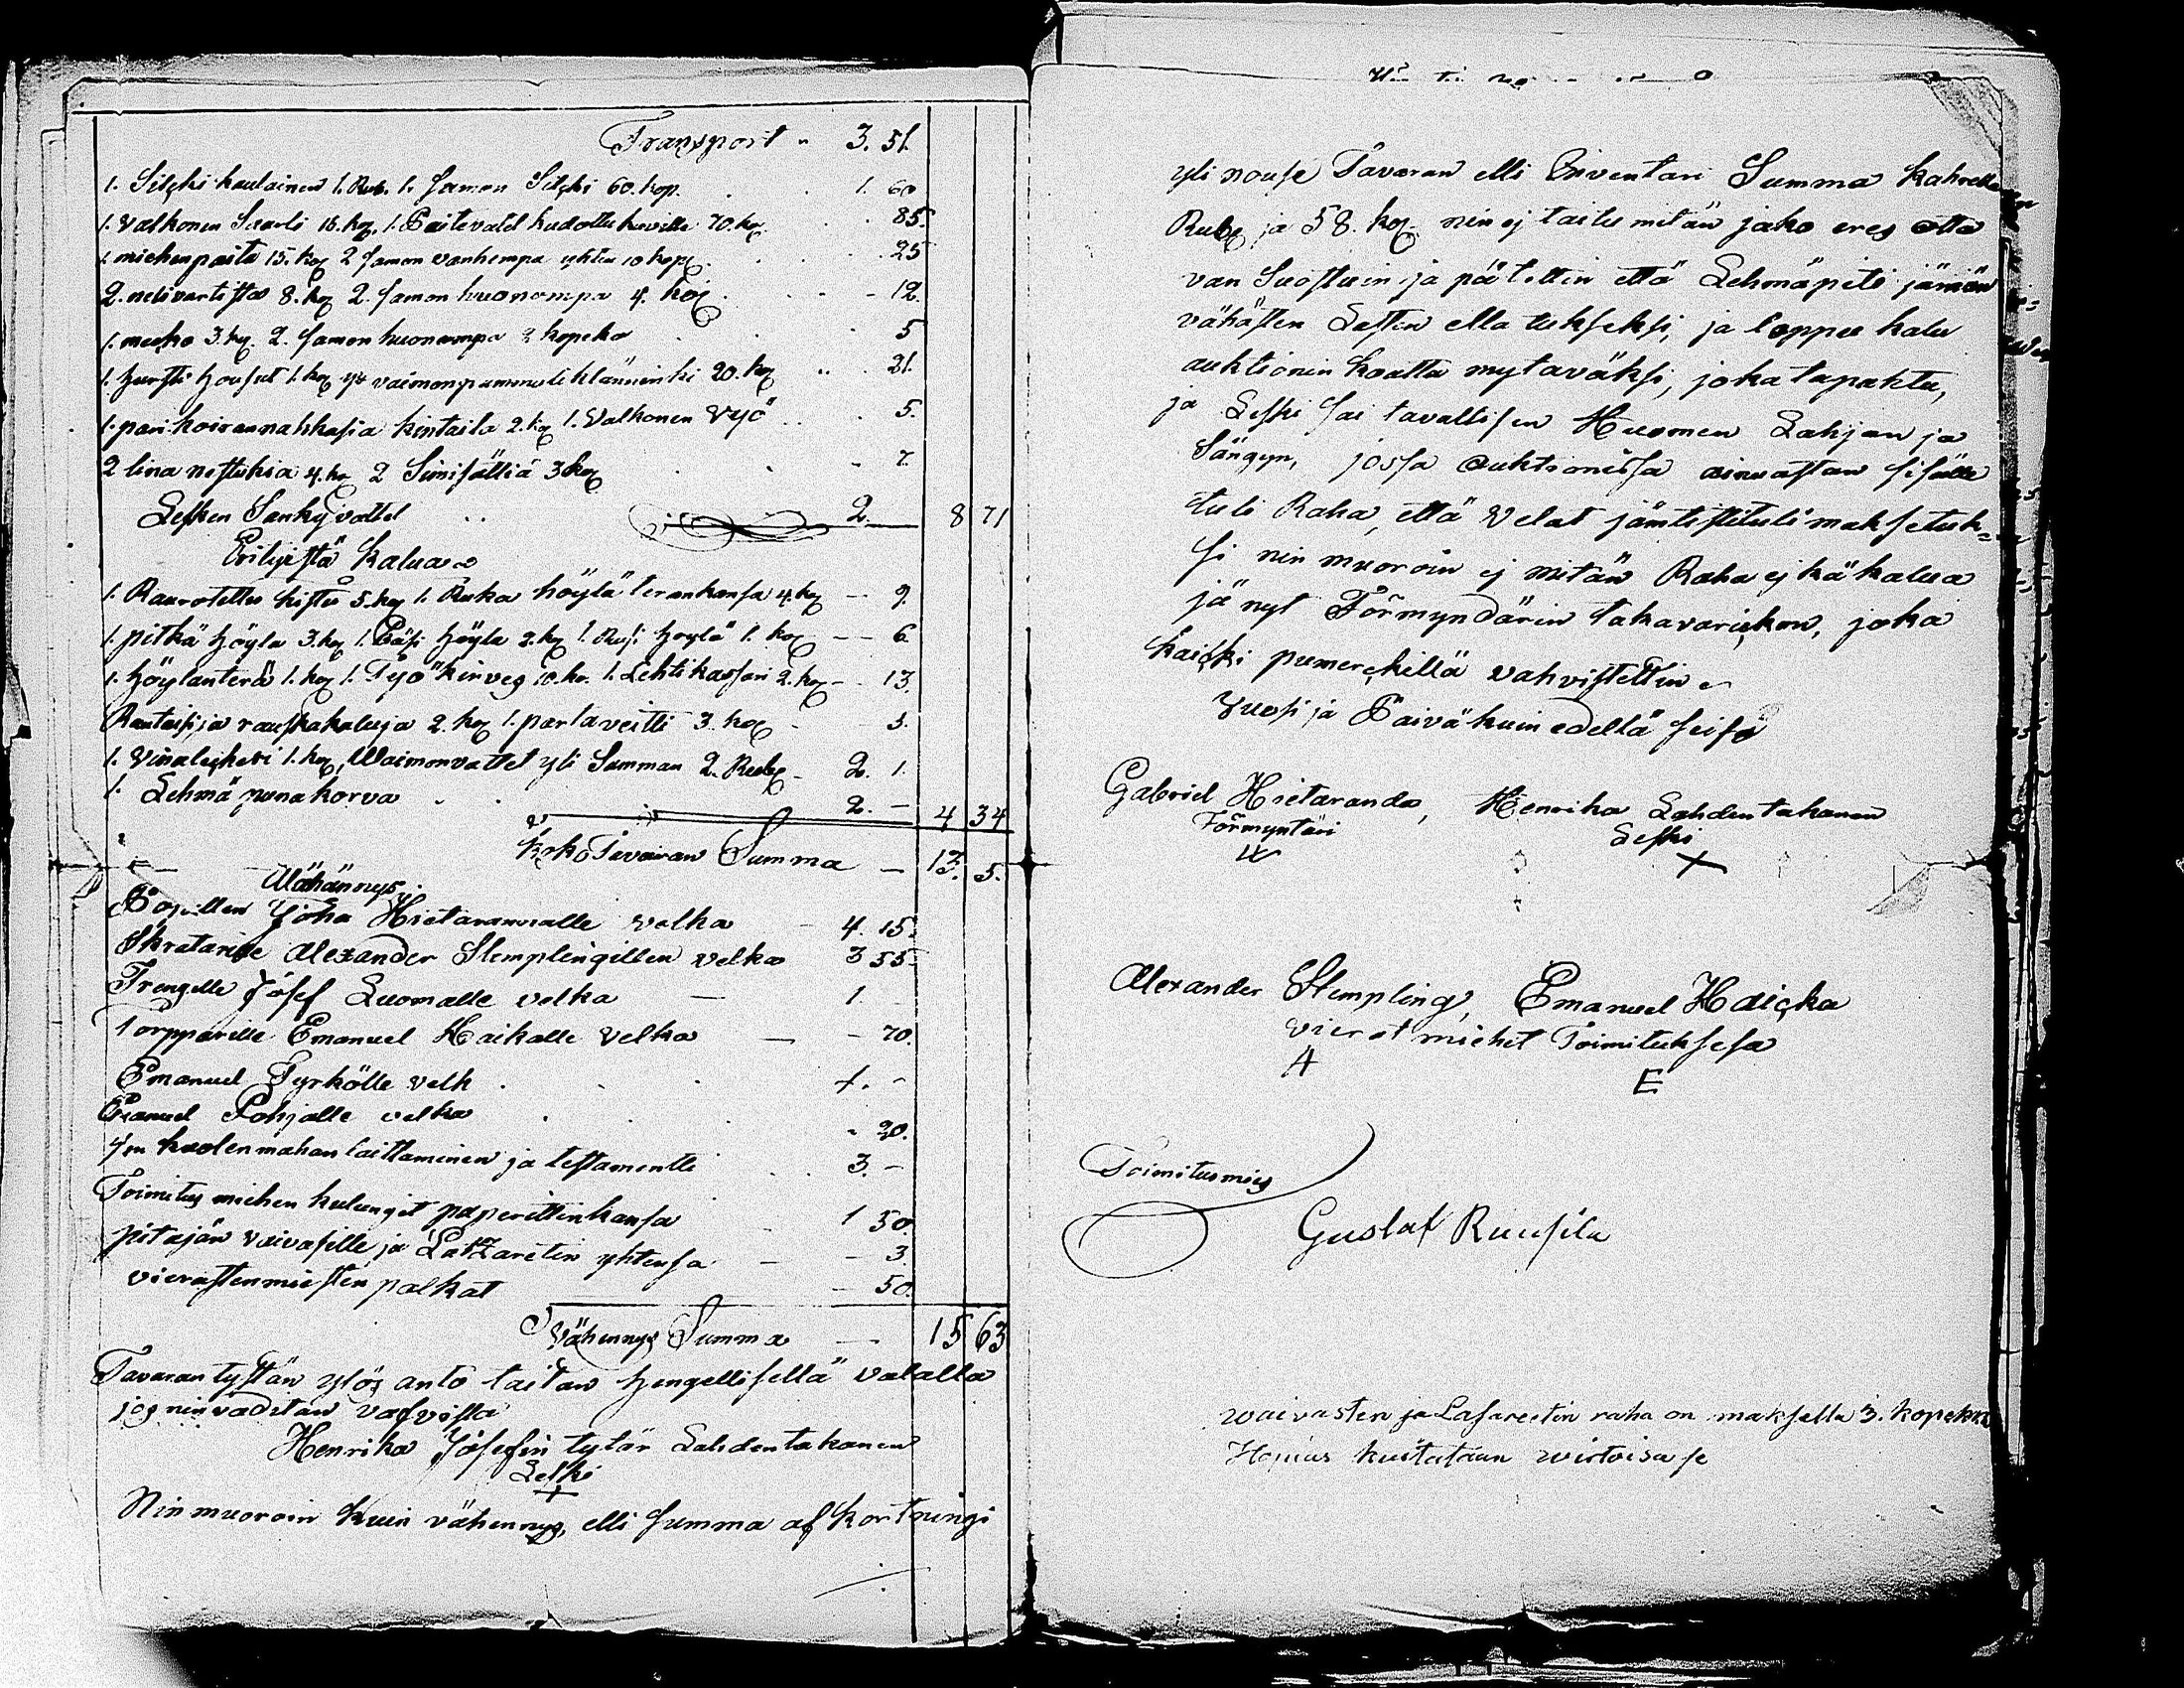 Transport " 3. 51.
1. Silcki kaulainen 1. Rub. 1. samon Silcki 60. kop. 1. 60
1. Valkonen Saarli 15. kop. 1. Paitevatel kudottu 70. kop. 85.
1. miehenpaita 15. kop 2 samon vanhempa yhten 10 kope. 25
2. nelivartista 8. kop 2. samon huonompa 4. kop. 12.
1. mecko 3. kop. 2. samon huonompa 2 kopeka 5
1. hursti housut 1. kop vaimon klänninki 20. kop 21.
1. pari koirannahkasia kintaita 2. kop 1. Valkonen Vyö 5.
2 lina nästukia 4. kop 2 3 kop 7.
Lesken Sankyvattet 2. — 8 71
Erilyistä Kalua
1. Raurotettu kistu 5. kop 1. Ruka höylä terankansa 4. kop — 9.
1. pitkä höylä 3. kop 1. Päsi höyla 2. kop 1. Rusi höylä 1. kop — 6.
1. höylanterä 1. kop 1. Työ kirveg 10. ko. 1. Lehtikassari 2. kop — 13.
Rautaisi ja rauskakaluja 2. kop 1. partaveitti 3. kop 5.
1. Vinaleckeri 1. kop, Waimonvattet yli Summan 2. Rube 2. 1.
1. Lehmä punakorva 2. — 4 34
koko Tavaran Summa — 13. 5.
Wähännys
Popillen Joha Hietarannalle velka 4. 15.
Skretarille Alexander Stemplingillen velka 3 55.
Trengelle Josef Luomalle velka — 1. -
Torpparille Emanuel Haikalle velka — - 70.
Emanuel Tyrkölle velk 1. -
Emanuel Pohjalle velka - 20.
kuolen mahan laittaminen ja testamentti 3. -
Toimitus miehen kulungit paperittinkansa 1 50.
pitäjän vaivasille ja Latzaretin yhtensa — 3.
vierastenmiesten palkat — 50.
Vähennys Summa — 15 63
Tavaran tystän ylös anto taitan hengellisellä valalla
jos nin vaditan vasvista
Henrika Josefin tytär Lahdentakanen
Leski
+
Nin muoroin kuin vähennys, elli summa af kortningi
yli nouse Tavaran elli Inventari Summa kahrella
Rube ja 58. kop. nin ej taitu mitän jako eres otta
van Suostuin ja pätettin että Lehmäpiti jämän
vähästen Lasten ella tukseksi, ja loppu kalu
auktionin koatta mytaväksi, joka tapaktu,
ja Leski sai tavallisen Huomen Lahjan ja
Sängyn, jossa auktionissa ainuastan sisälle
tuli Raha, että Velat jämtisti tuli maksetuk=
si nin muoroin ej mitän Raha ej kä kalua
jä nyt Förmyndärin takavarickon, joka
kaicki pumerckillä vahvistettin
Vuosi ja Paivä kuin edellä seiso
Gabriel Hietaranda, Henrika Lahdentakanen
Förmyntäri Leski
+
Alexander Stempling, Emanuel Haicka
vierat miehet Toimituksesa
A E
Toimitusmies
Gustaf Ruusila
waivasten ja Lasareetin raha on maksettu 3. kopekka
kuitataan